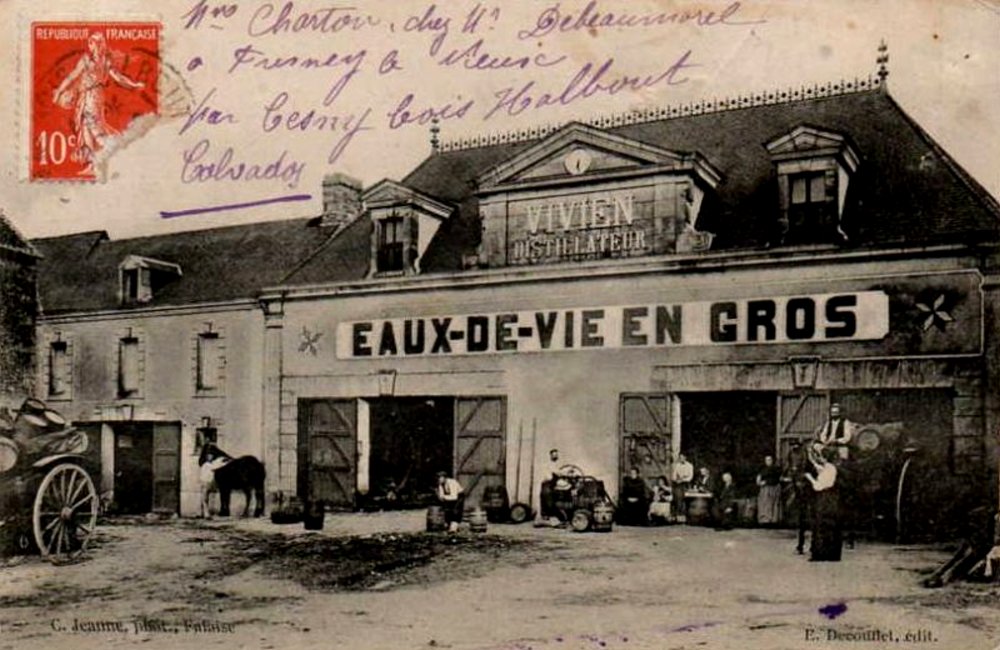 REPUBLIQUE FRANÇAISE
10 c
Mme Charton, chez Mr Debeaumorel
a Fresney le Vieux
par Cesny bois Halbout
Calvados
VIVIEN
DISTILLATEUR
EAUX-DE-VIE EN GROS
C. Jeanne, phot., Falaise
E. Decouflet, édit.